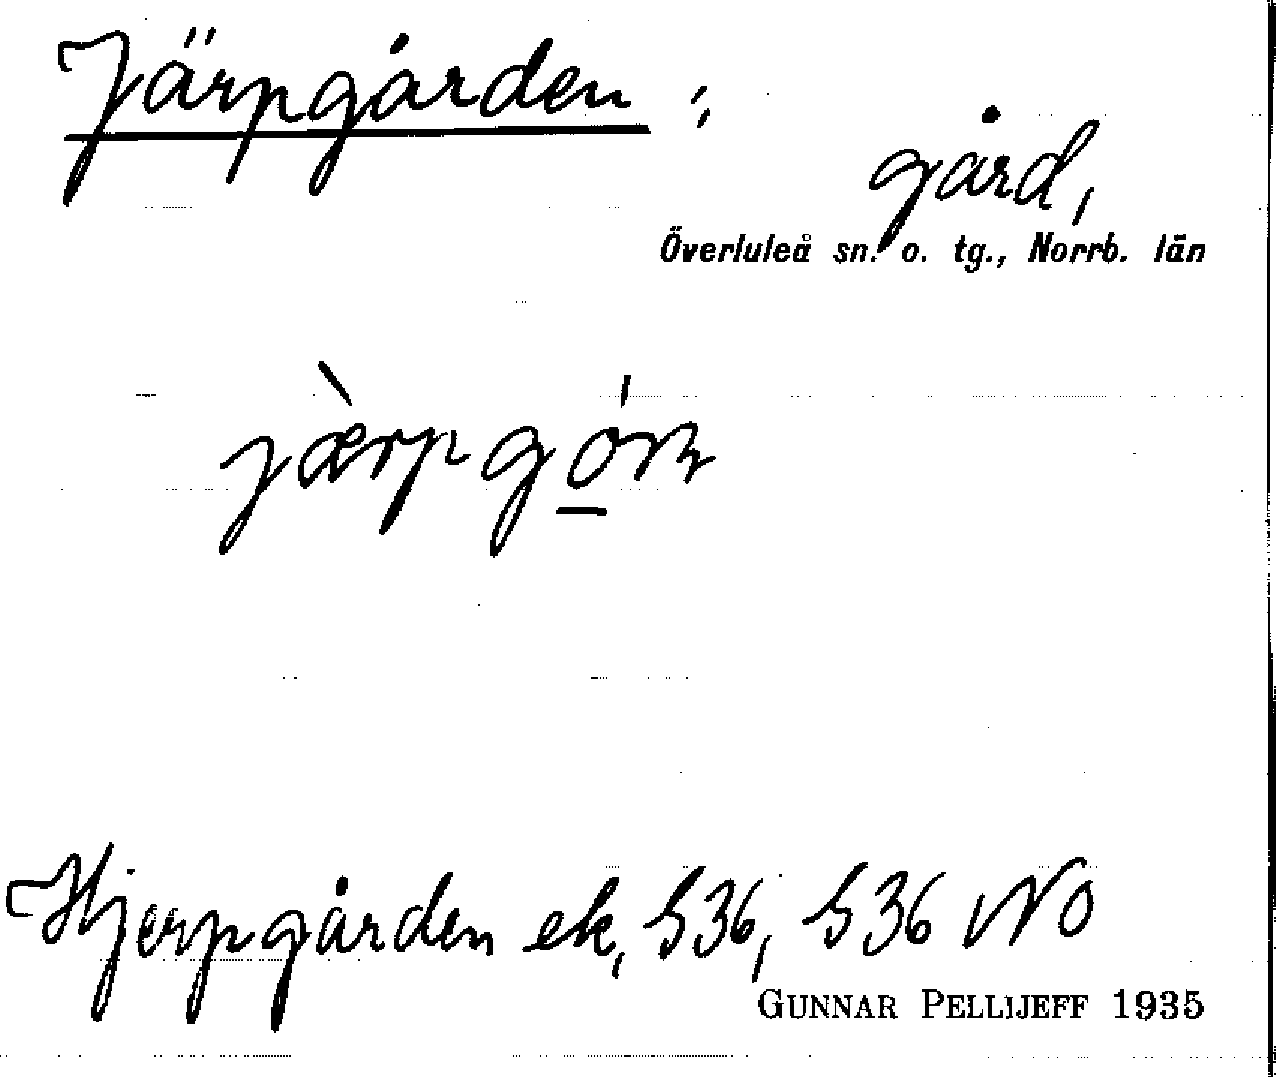 Järpgården;
gård,
Överluleå sn. o. tg., Norrb. län
jæ̀rpgó̱rn
Hjerpgården ek, S36, S36 NO
GUNNAR PELLIJEFF 1935